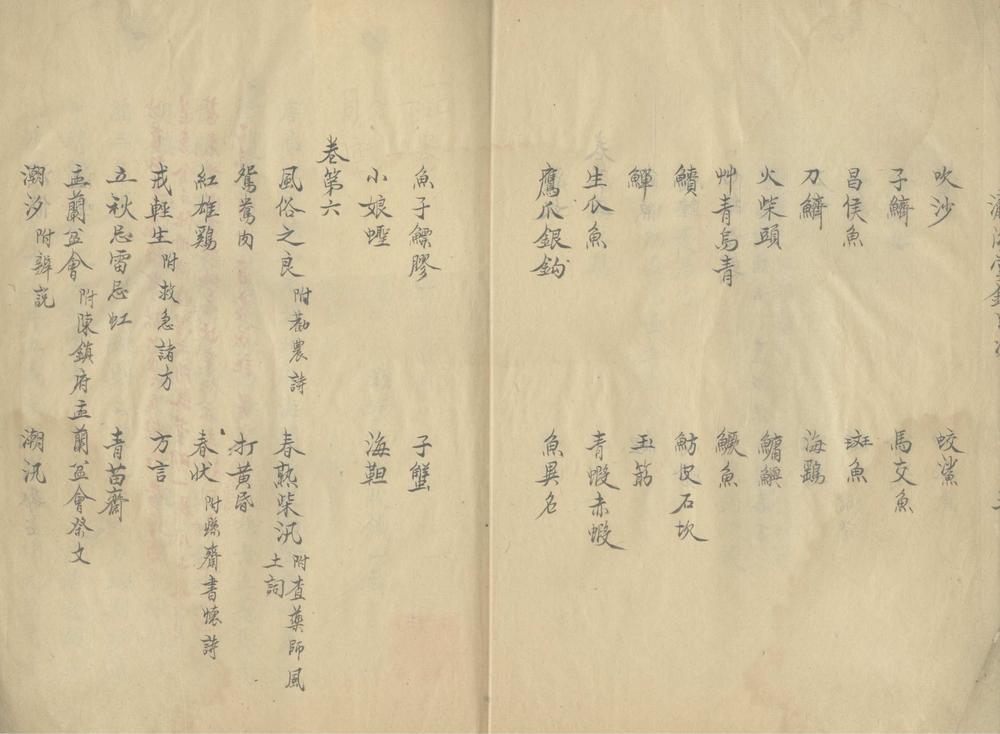 吹沙　蛟鯊
子鱭　馬交魚
昌侯魚　斑魚
刀鱭　海鷂
火柴頭　鱅鱮
艸青烏青　鱖魚
鱝　魴皮石坎
鱓　玉筯
生瓜魚　青蝦赤蝦
鷹爪銀鈎　魚異名
魚子鰾膠　子蟹
小娘蟶　海靼
卷第六
風俗之良附勸農詩　春熟柴汛附查藥師風土詞
鴛鴦肉　打黃昏
紅雄鷄　春状附縣齋書懷詩
戒輕生附救急諸方　方言
立秋忌雷忌虹　青苗齋
盂蘭盆會附陳鎮府盂蘭盆會祭文
潮汐附辨説　潮汛